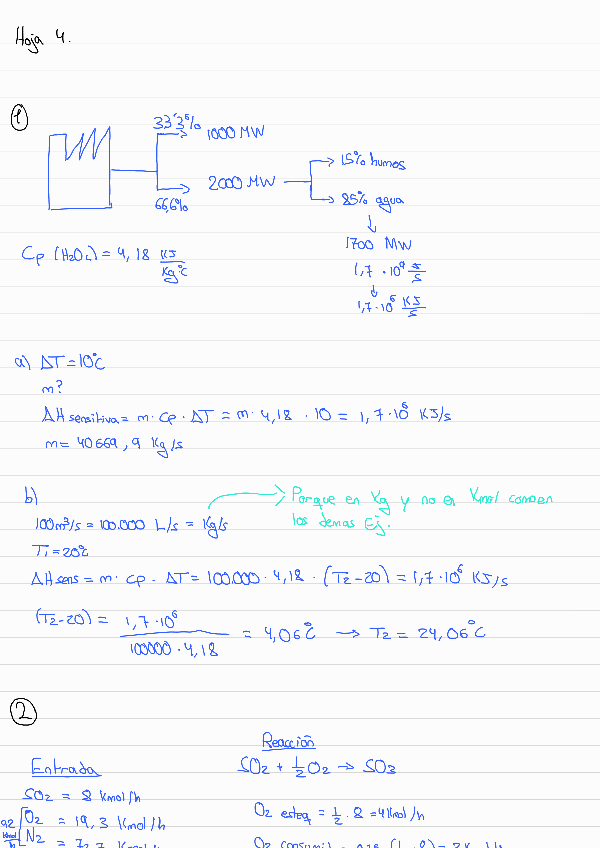 Hoja 4.
①
33'3% 1000 MW
66,6% 2000 MW
15% humos
85% agua
1700 MW
1,7 · 10⁹ J/s
1,7 · 10⁶ KJ/s
Cp (H2O L) = 4,18 KJ/Kg°C
a) ΔT = 10°C
m?
ΔH sensitiva = m · Cp · ΔT = m · 4,18 · 10 = 1,7 · 10⁶ KJ/s
m = 40669,9 Kg/s
b)
Porque en Kg y no en Kmol como en
los demas Ej.
100m³/s = 100.000 L/s = Kg/s
T1 = 20°C
ΔH sens = m · Cp · ΔT = 100.000 · 4,18 · (T2-20) = 1,7 · 10⁶ KJ/s
(T2-20) = 1,7 · 10⁶ / 100000 · 4,18 = 4,06°C → T2 = 24,06°C
②
Reacción
Entrada
SO2 + 1/2 O2 → SO3
SO2 = 8 Kmol/h
92 Kmol/h
O2 = 19,3 Kmol/h
O2 esteq = 1/2 · 8 = 4 Kmol/h
N2